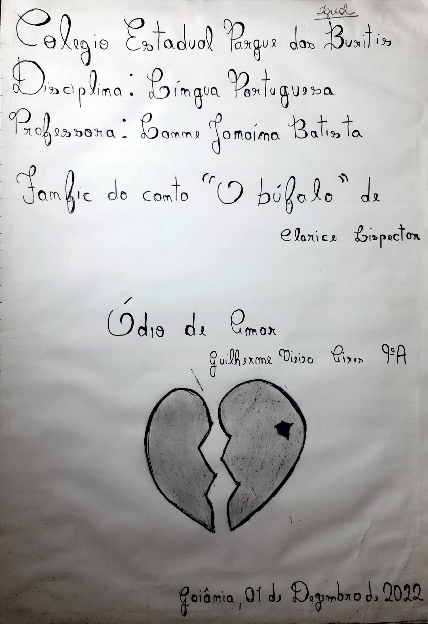 Colegio Estadual Parque dos Buritis
Disciplina: Língua Portuguesa
Professora: Lanne Janaína Batista
Fanfic do conto "O búfalo" de
Clarice Lispector
Ódio de Amor
Guilherme Vieira 9ºA
Goiânia, 01 de Dezembro de 2022